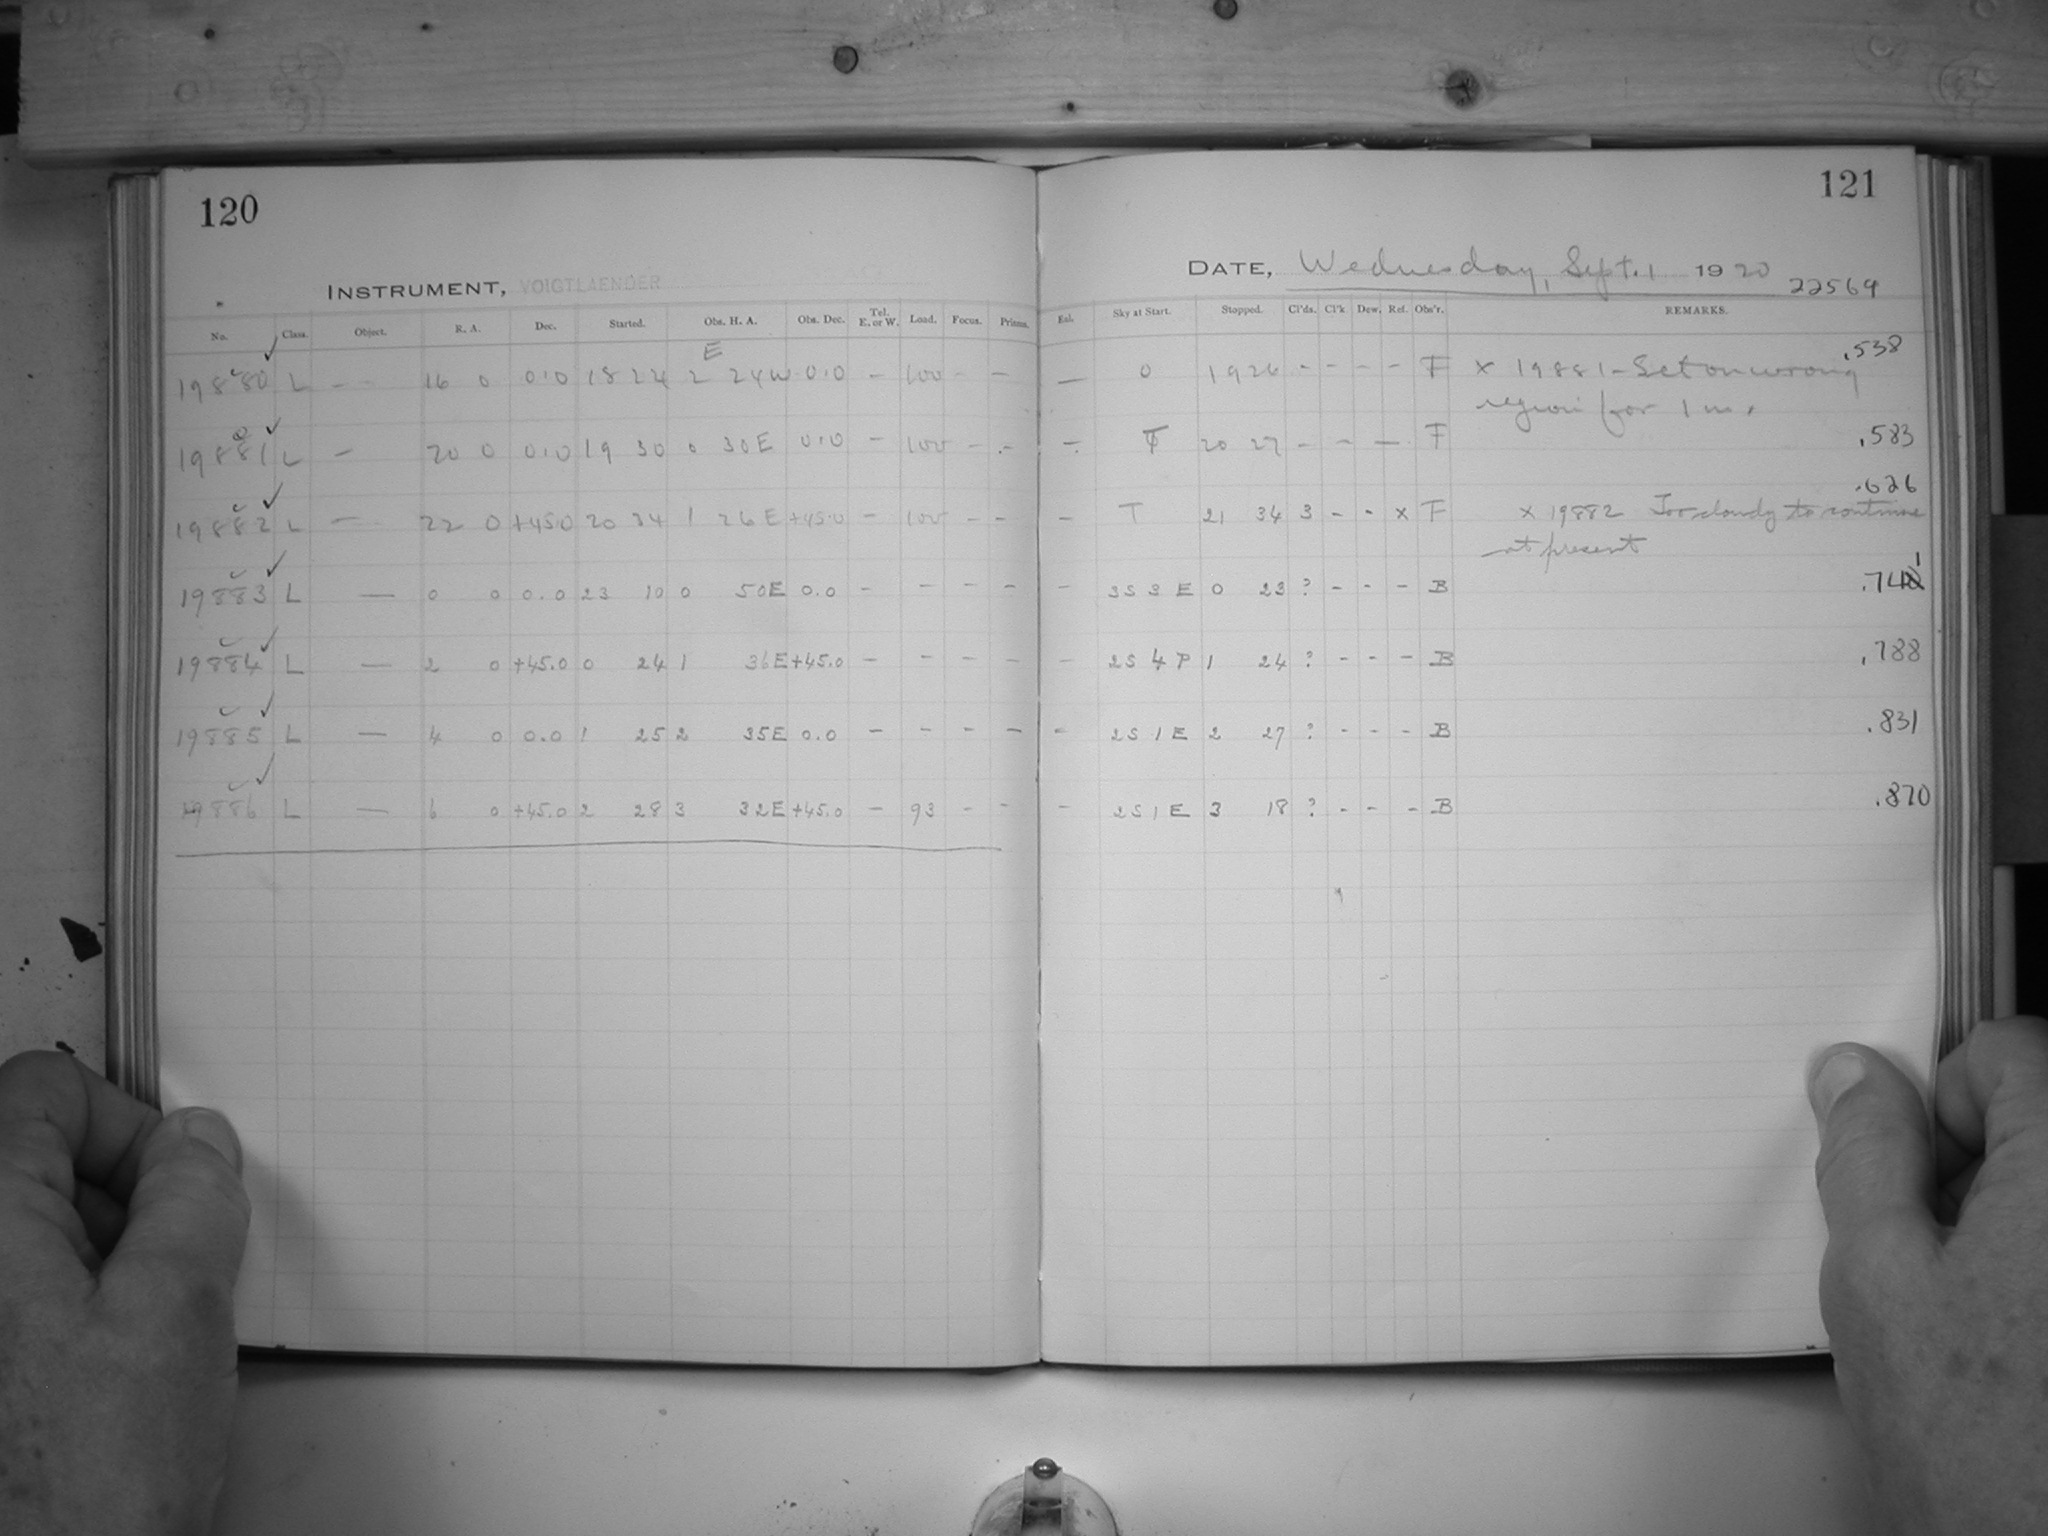 120
INSTRUMENT, VOIGTLAENDER
No. Class. Object. R. A. Dec. Started. Obs. H. A. Obs. Dec. Tel. E. or W. Load. Focus. Prisms.
E
19880 L - - 16 0 0.0 18 24 2 24W 0.0 - 100 - -
19881 L - 20 0 0.0 19 30 0 30E 0.0 - 100 - -
19882 L - 22 0 +45.0 20 34 1 26E +45.0 - 100 - -
19883 L - 0 0 0.0 23 10 0 50E 0.0 - - - -
19884 L - 2 0 +45.0 0 24 1 36E +45.0 - - - -
19885 L - 4 0 0.0 1 25 2 35E 0.0 - - - -
19886 L - 6 0 +45.0 2 28 3 32E +45.0 - 93 - -
121
DATE, Wednesday, Sept. 1 1920
22569
Sky at Start. Stopped. Cl'ds. Cl'k Dew. Ref. Obs'r. REMARKS.
- 0 19 26 - - - - F x 19881 - Set on wrong .538
region for 1 m.
- T 20 27 - - - F .583
.626
- T 21 34 3 - - x F x 19882 Too cloudy to continue
at present
- 3S 3 E 0 23 ? - - - B .741
- 2S 4 P 1 24 ? - - - B .788
- 2S 1 E 2 27 ? - - - B .831
- 2S 1 E 3 18 ? - - - B .870